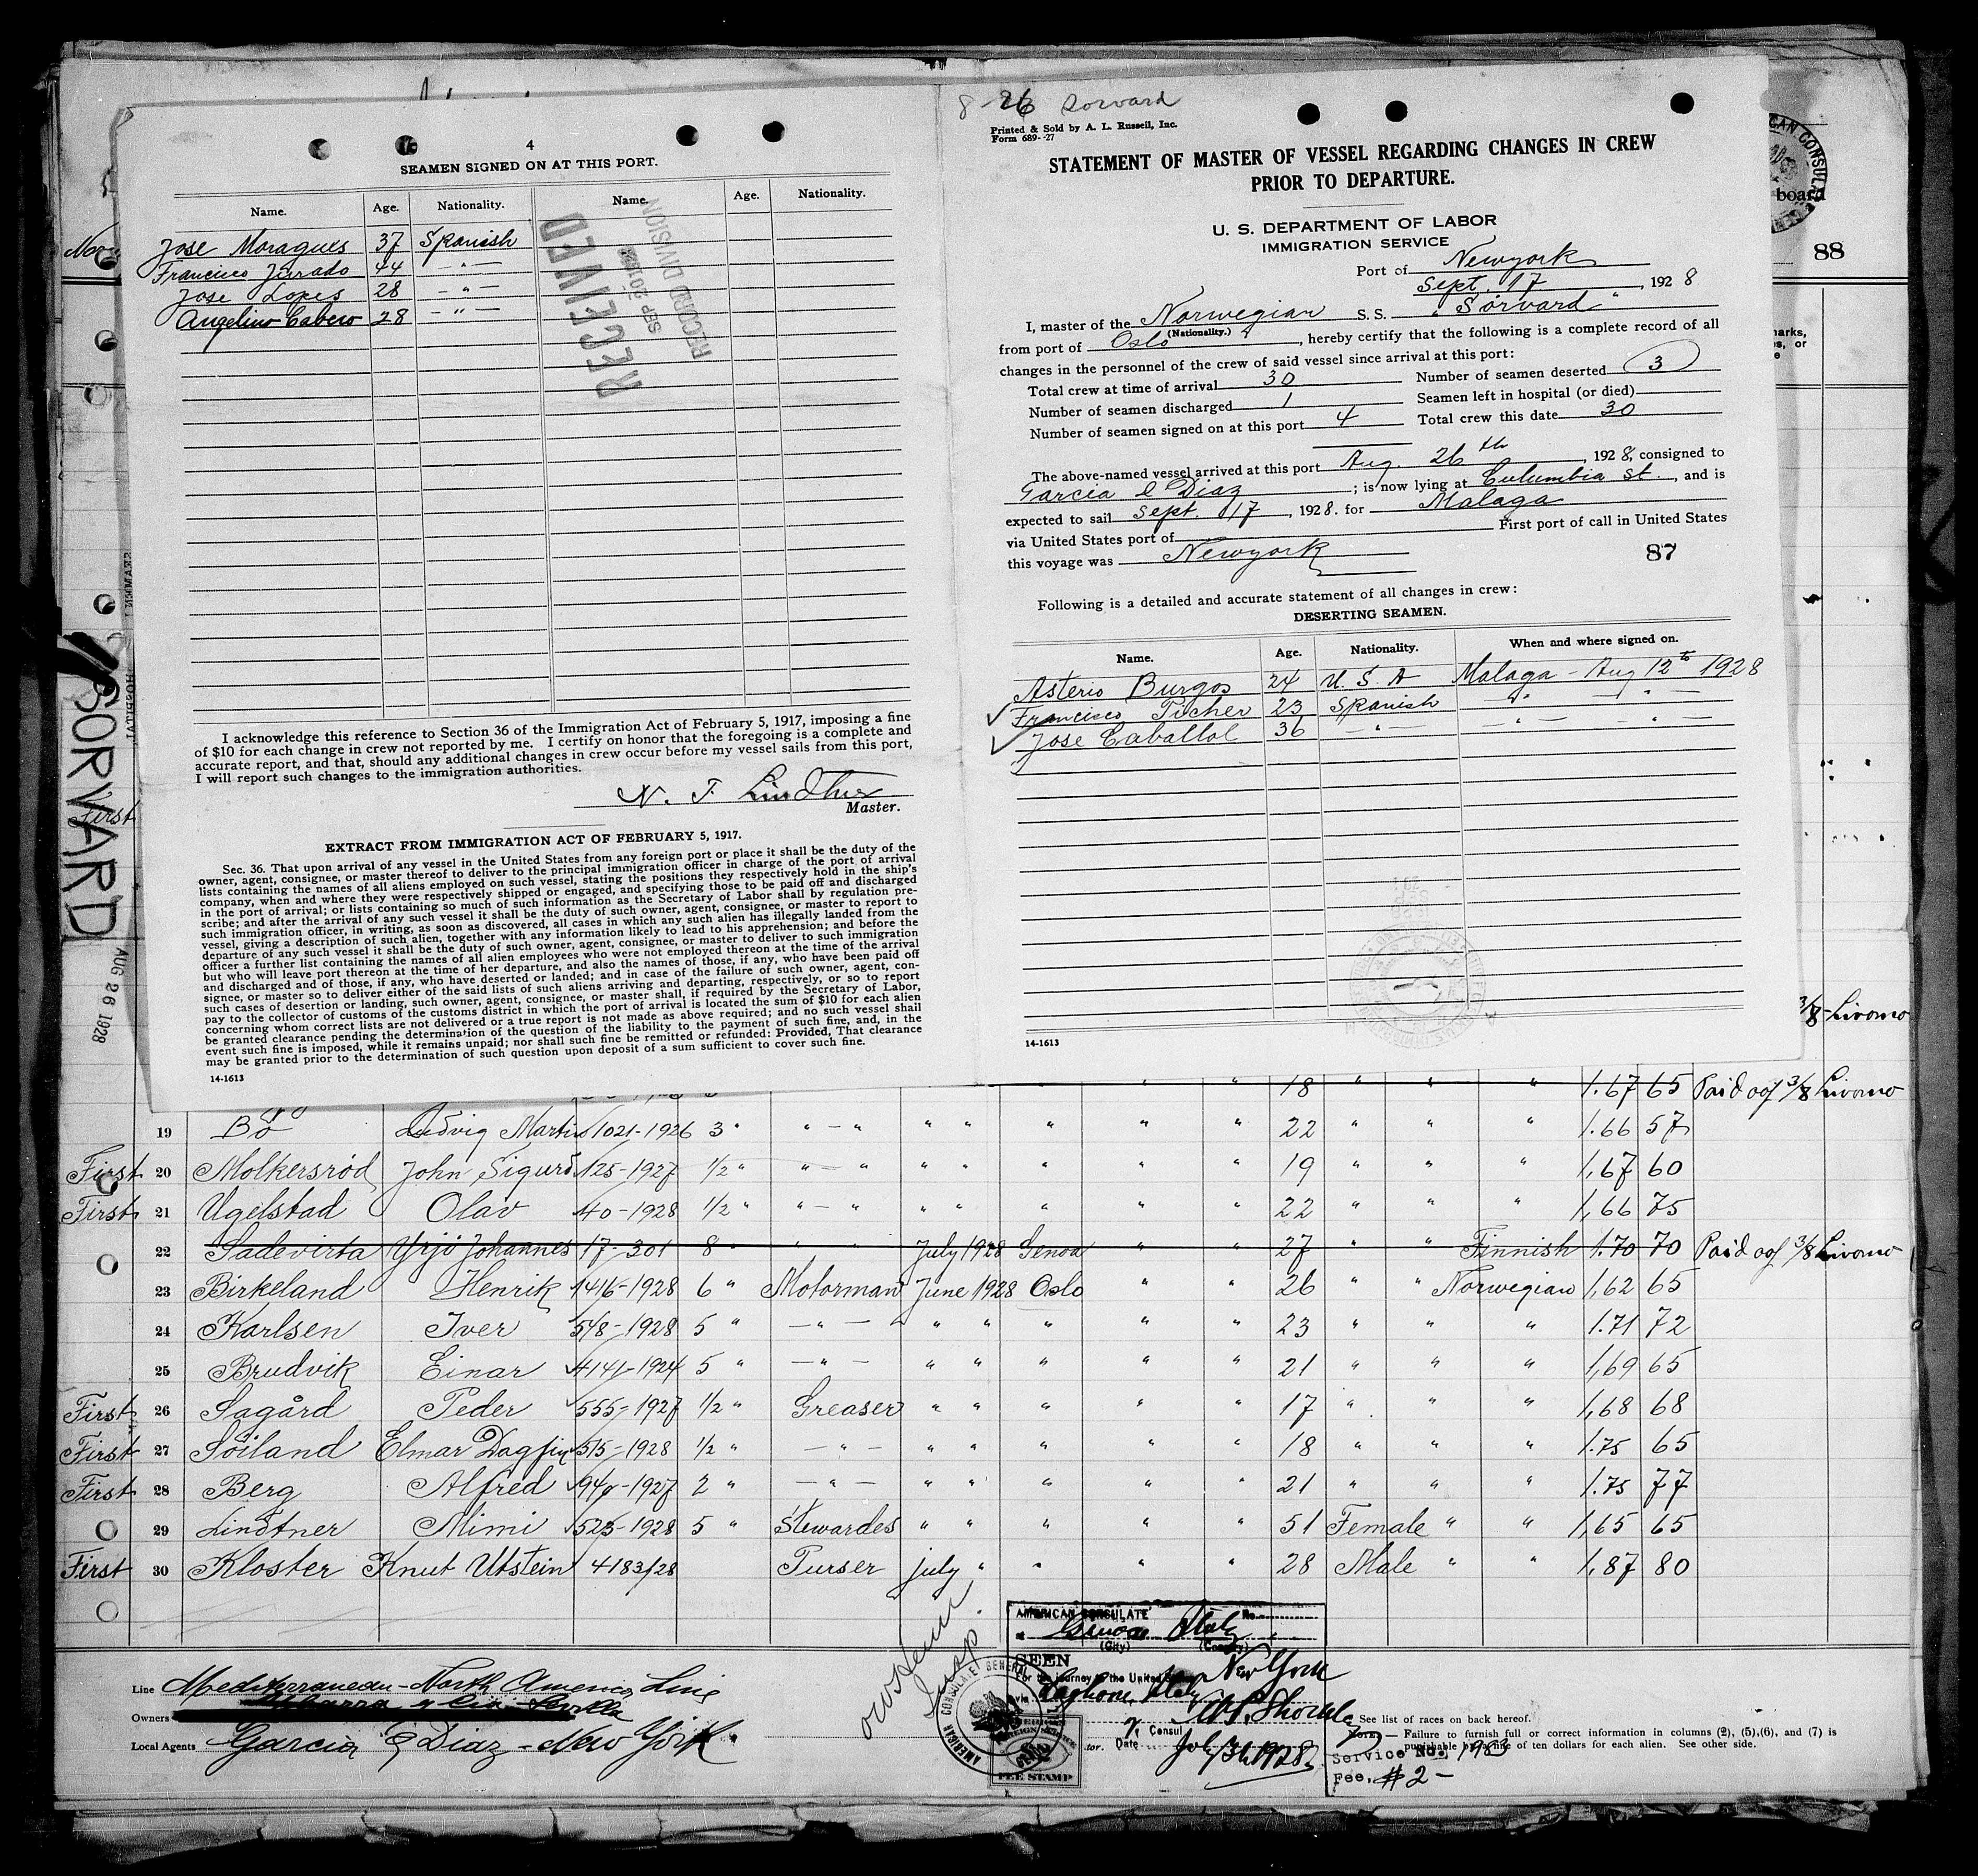 4
SEAMEN SIGNED ON AT THIS PORT.
Name. Age. Nationality. Name. Age. Nationality.
Jose Moragues 37 Spanish
Francisco Jurado 44 - " -
Jose Lopes 28 - " -
Angelino Cabero 28 - " -
RECEIVED
RECORD DIVISION
I acknowledge this reference to Section 36 of the Immigration Act of February 5, 1917, imposing a fine
of $10 for each change in crew not reported by me. I certify on honor that the foregoing is a complete and
accurate report, and that, should any additional changes in crew occur before my vessel sails from this port,
I will report such changes to the immigration authorities.
N. F. Lindtner
Master.
EXTRACT FROM IMMIGRATION ACT OF FEBRUARY 5, 1917.
Sec. 36. That upon arrival of any vessel in the United States from any foreign port or place it shall be the duty of the
owner, agent, consignee, or master thereof to deliver to the principal immigration officer in charge of the port of arrival
lists containing the names of all aliens employed on such vessel, stating the positions they respectively hold in the ship's
company, when and where they were respectively shipped or engaged, and specifying those to be paid off and discharged
in the port of arrival; or lists containing so much of such information as the Secretary of Labor shall by regulation pre-
scribe; and after the arrival of any such vessel it shall be the duty of such owner, agent, consignee, or master to report to
such immigration officer, in writing, as soon as discovered, all cases in which any such alien has illegally landed from the
vessel, giving a description of such alien, together with any information likely to lead to his apprehension; and before the
departure of any such vessel it shall be the duty of such owner, agent, consignee, or master to deliver to such immigration
officer a further list containing the names of all alien employees who were not employed thereon at the time of the arrival
but who will leave port thereon at the time of her departure, and also the names of those, if any, who have been paid off
and discharged and of those, if any, who have deserted or landed; and in case of the failure of such owner, agent, con-
signee, or master so to deliver either of the said lists of such aliens arriving and departing, respectively, or so to report
such cases of desertion or landing, such owner, agent, consignee, or master shall, if required by the Secretary of Labor,
pay to the collector of customs of the customs district in which the port of arrival is located the sum of $10 for each alien
concerning whom correct lists are not delivered or a true report is not made as above required; and no such vessel shall
be granted clearance pending the determination of the question of the liability to the payment of such fine, and, in the
event such fine is imposed, while it remains unpaid; nor shall such fine be remitted or refunded: Provided, That clearance
may be granted prior to the determination of such question upon deposit of a sum sufficient to cover such fine.
14-1613
8-26 Sorvard
Printed & Sold by A. L. Russell, Inc.
Form 689--27
STATEMENT OF MASTER OF VESSEL REGARDING CHANGES IN CREW
PRIOR TO DEPARTURE.
U. S. DEPARTMENT OF LABOR
IMMIGRATION SERVICE
Port of Newyork
Sept. 17, 1928
I, master of the Norwegian S. S. "Sörvard"
(Nationality.)
from port of Oslo, hereby certify that the following is a complete record of all
changes in the personnel of the crew of said vessel since arrival at this port:
Total crew at time of arrival 30 Number of seamen deserted 3
Number of seamen discharged 1 Seamen left in hospital (or died)
Number of seamen signed on at this port 4 Total crew this date 30
The above-named vessel arrived at this port Aug. 26th, 1928, consigned to
Garcia & Diaz; is now lying at Columbia St., and is
expected to sail Sept. 17, 1928. for Malaga
via United States port of First port of call in United States
this voyage was Newyork
87
Following is a detailed and accurate statement of all changes in crew:
DESERTING SEAMEN.
Name. Age. Nationality. When and where signed on.
Asterio Burgos 24 U. S. A Malaga - Aug 12th 1928
Francisco Picher 23 Spanish - " - - " -
Jose Caballol 36 - " - - " - - " -
14-1613
88
board
SORVARD
AUG 26 1928
First
3/8 - Livorno
18 " " " 1.67 65 Paid off 3/8 Livorno
19 Bö Ludvig Martin 1021-1926 3 " " - " " " " " " 22 " " " 1.66 57
First 20 Molkersröd John Sigurd 125-1927 1/2 " " - " " " " " " 19 " " " 1,67 60
First 21 Ugelstad Olav 40-1928 1/2 " " - " " " " " " 22 " " " 1,66 75
22 Sadevirta Yrjö Johannes 17-301 8 " " " July 1928 Genoa " " 27 " " Finnish 1.70 70 Paid off 3/8 Livorno
23 Birkeland Henrik 1416-1928 6 " Motorman June 1928 Oslo " " 26 " " Norwegian 1,62 65
24 Karlsen Iver 518-1928 5 " - " - " " " " " 23 " " " 1.71 72
25 Brudvik Einar 4141-1924 5 " - " - " " " " " 21 " " " 1,69 65
First 26 Sagård Peder 555-1927 1/2 " Greaser " " " " " 17 " " " 1,68 68
First 27 Söiland Elmar Dagfin 515-1928 1/2 " - " - " " " " " 18 " " " 1.75 65
First 28 Berg Alfred 940-1927 2 " - " - " " " " " 21 " " " 1.75 77
29 Lindtner Mimi 525-1928 5 " Stewardes " " " " " 51 Female " " 1,65 65
First 30 Kloster Knut Utstein 4183/28 Purser july " " " " 28 Male " " 1,87 80
Line Mediterranean-North America Line
Owners
Local Agents Garcia & Diaz - New York
AMERICAN CONSULATE No.
Genoa Italy
(City) (Country)
SEEN
For the journey to the United States New York
via Leghorn, Italy
Consul
Date July 31 1928
AMERICAN CONSULATE GENERAL
FEE STAMP
See list of races on back hereof.
NOTE.— Failure to furnish full or correct information in columns (2), (5), (6), and (7) is
punishable by a fine of ten dollars for each alien. See other side.
Service No. 1983
Fee, $2-